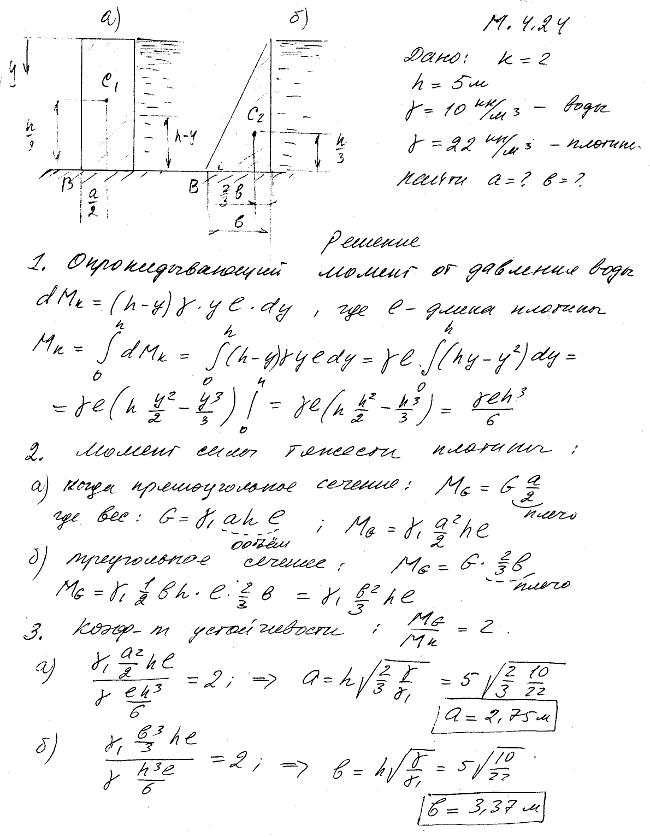 а) б)
М. 4.24
Дано: к = 2
h = 5 м
γ = 10 кн/м³ — воды
γ = 22 кн/м³ — плотин.
Найти а = ? в = ?
y
C₁
C₂
h-y
h/3
В
а/2
В
2/3 в
в
Решение
1. Опрокидывающий момент от давления воды
dMк = (h-y) γ · y ℓ · dy , где ℓ - длина плотины
Mк = ∫₀ʰ dMк = ∫₀ʰ (h-y)γyℓdy = γℓ · ∫₀ʰ (hy - y²) dy =
= γℓ (h y²/2 - y³/3) |₀ʰ = γℓ (h h²/2 - h³/3) = γℓh³/6
2. Момент силы тяжести плотины :
а) когда прямоугольное сечение : MG = G а/2
плечо
где вес : G = γ₁ аhℓ ; MG = γ₁ а²/2 hℓ
объём
б) треугольное сечение ; MG = G · 2/3 в
плечо
MG = γ₁ 1/2 вh · ℓ · 2/3 в = γ₁ в²/3 hℓ
3. Коэф-т устойчивости ; MG/Mк = 2 .
а) (γ₁ а²/2 hℓ)/(γ ℓh³/6) = 2 ; => а = h√(2/3 γ/γ₁) = 5 √(2/3 10/22)
а = 2,75 м
б) (γ₁ в³/3 hℓ)/(γ h³ℓ/6) = 2 ; => в = h√(γ/γ₁) = 5√(10/22)
в = 3,37 м